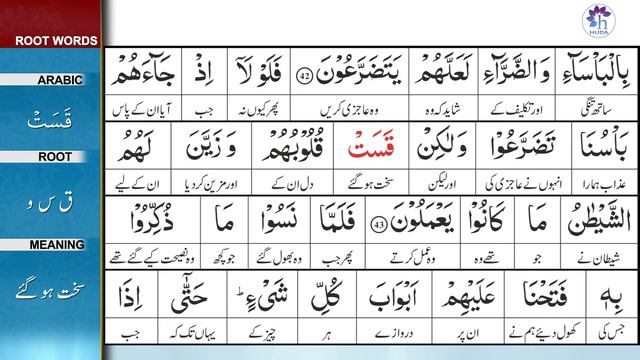 HUDA
ROOT WORDS
ARABIC
قَسَتْ
ROOT
ق س و
MEANING
سخت ہو گئے
بِالْبَاْسَآءِ وَالضَّرَّآءِ لَعَلَّهُمْ يَتَضَرَّعُوْنَ ﴿42﴾ فَلَوْ لَآ اِذْ جَآءَهُمْ
ساتھ تنگی اور تکلیف کے شاید کہ وہ وہ عاجزی کریں پھر کیوں نہ جب آیا ان کے پاس
بَاْسُنَا تَضَرَّعُوْا وَلٰكِنْ قَسَتْ قُلُوْبُهُمْ وَ زَيَّنَ لَهُمُ
عذاب ہمارا انہوں نے عاجزی کی اور لیکن سخت ہو گئے دل ان کے اور مزین کر دیا ان کے لیے
الشَّيْطٰنُ مَا كَانُوْا يَعْمَلُوْنَ ﴿43﴾ فَلَمَّا نَسُوْا مَا ذُكِّرُوْا
شیطان نے جو تھے وہ وہ عمل کرتے پھر جب وہ بھول گئے جو کچھ وہ نصیحت کیے گئے تھے
بِهٖ فَتَحْنَا عَلَيْهِمْ اَبْوَابَ كُلِّ شَيْءٍ ؕ حَتّٰٓى اِذَا
جس کی کھول دیئے ہم نے ان پر دروازے ہر چیز کے یہاں تک کہ جب